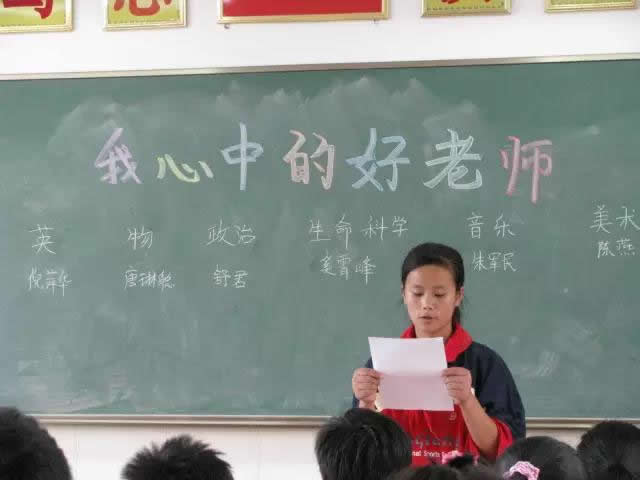 我心中的好老师
英 物 政治 生命科学 音乐 美术
唐琳聪 舒君 雪峰 朱军民 陈燕